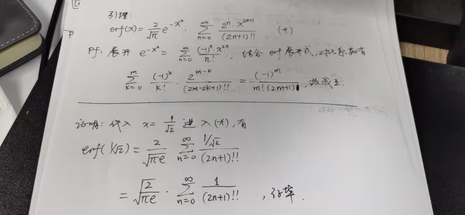 引理:
erf(x) = 2/√π e^{-x²} · ∑_{n=0}^{∞} 2ⁿ x^{2n+1}/(2n+1)!! (*)
Pf: 展开 e^{-x²} = ∑_{n=0}^{∞} (-1)ⁿ x^{2n}/n! 结合 erf 展开式,对比系数有
∑_{k=0}^{m} (-1)^k/k! · 2^{m-k}/(2m-2k+1)!! = (-1)^m/m!(2m+1), 故成立.
证明: 代入 x = 1/√2 进入 (*), 有
erf(1/√2) = 2/√πe ∑_{n=0}^{∞} 1/√2/(2n+1)!!
= √(2/πe) · ∑_{n=0}^{∞} 1/(2n+1)!! , 证毕.